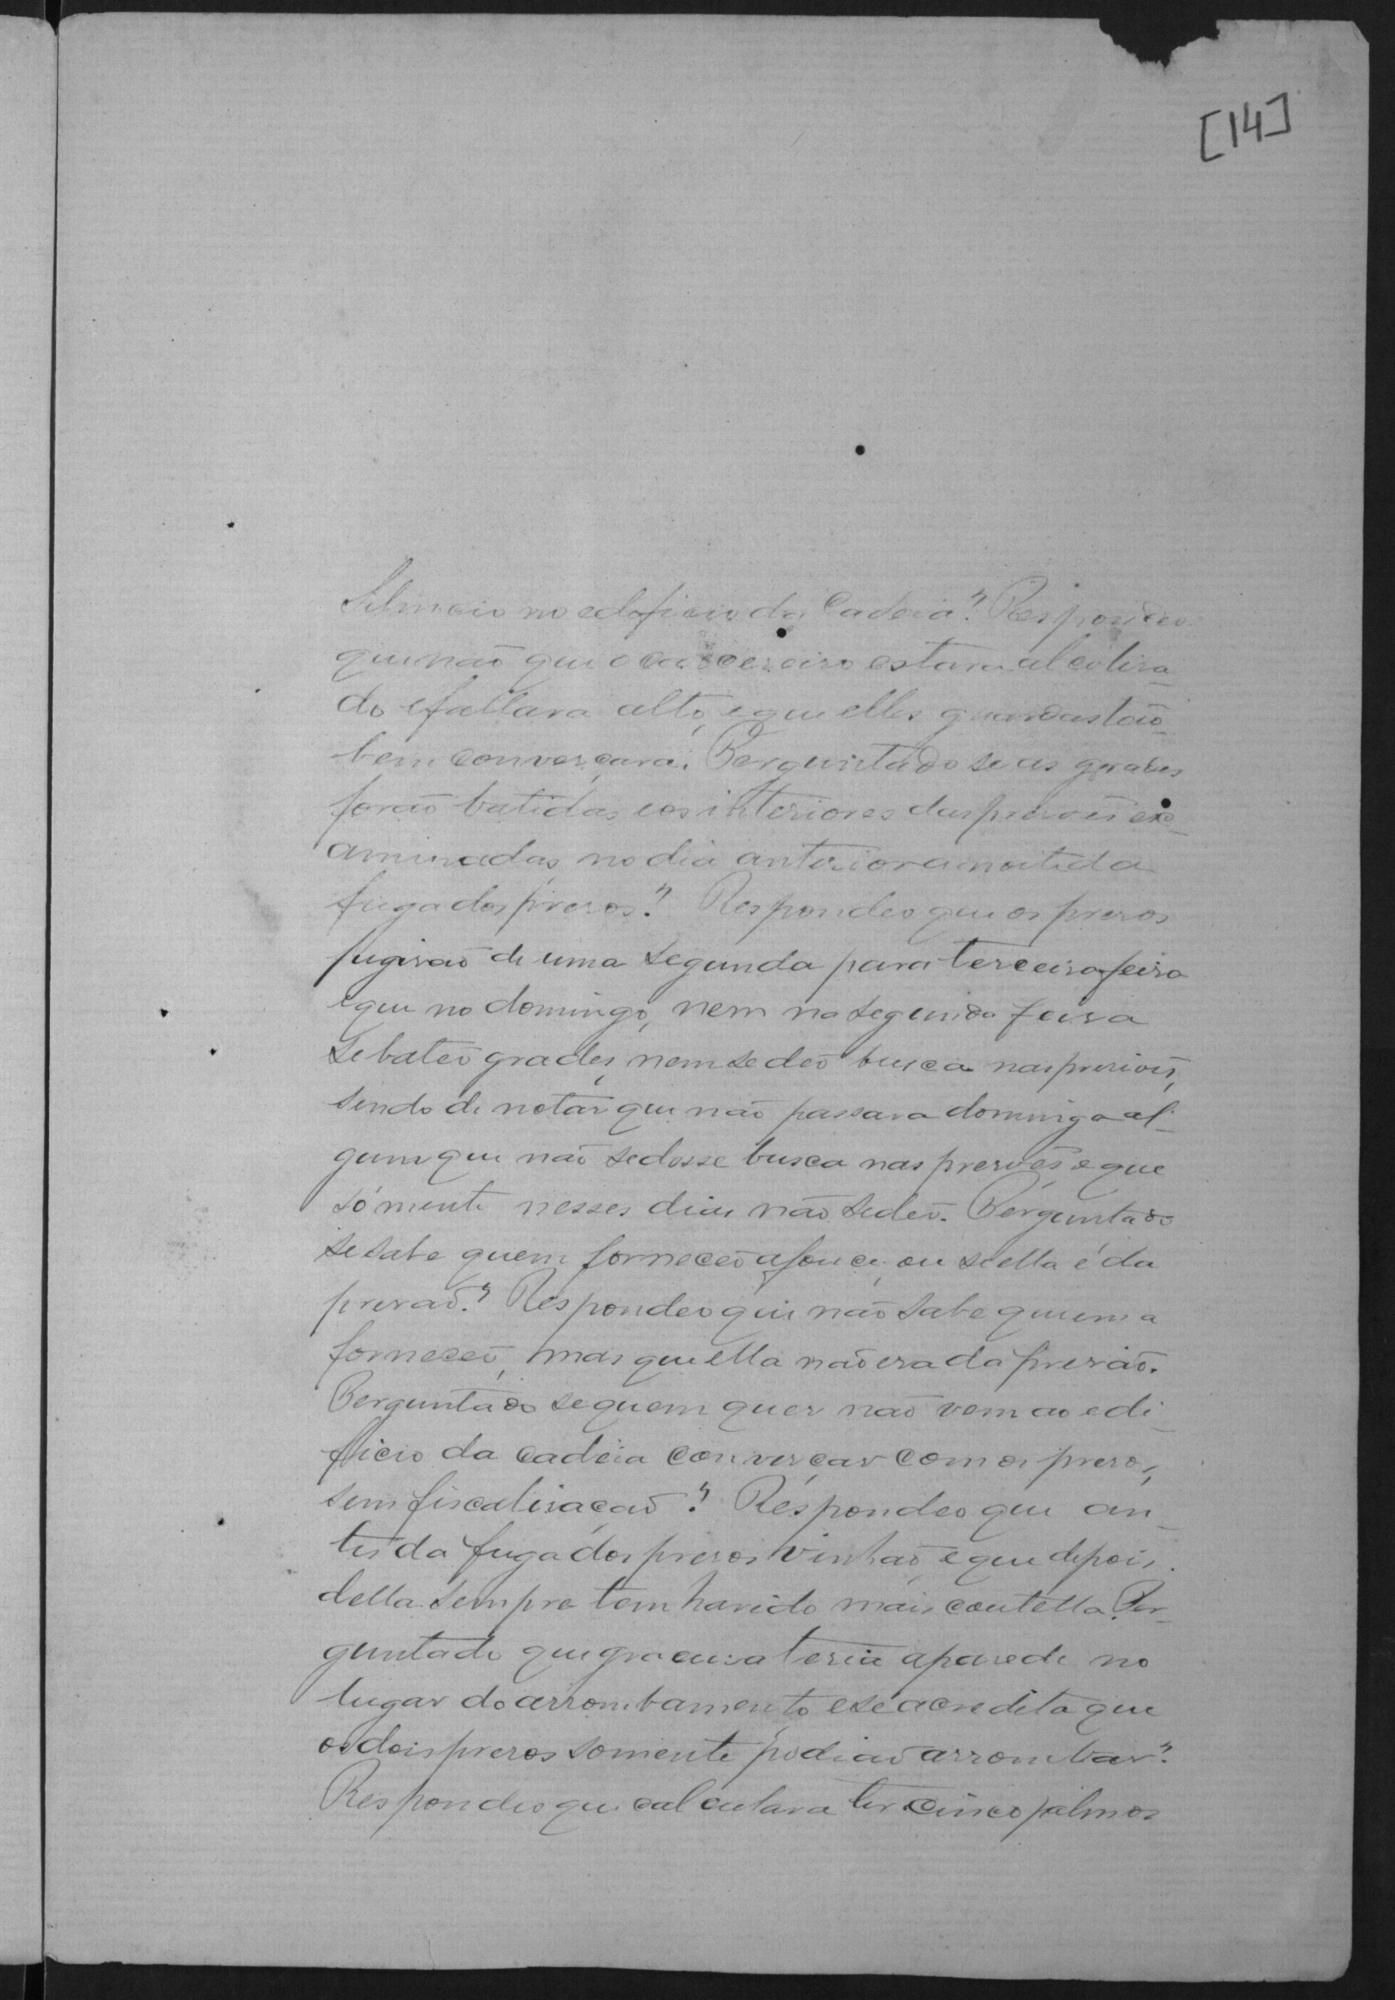 [14]
Silencio no edeficio da Cadeia? Respondeo
que não que o carcereiro estava alcolisa-
do e fallava alto, e que elles guardas tão-
bem converçava. Perguntado se as grades
forão batidas, e os interiores das presoẽs ex-
aminadas, no dia anterior a noite da
fuga dos presos? Respondeo que os presos
fugirão de uma segunda para terceira feira
e que no domingo, nem na segunda feira
se bateo grades, nem se deo busca nas prisoẽs,
sendo de notar que não passava domingo al-
gum que não se desse busca nas presoẽs, e que
sómente nesses dias não se deo. Perguntado
se sabe quem forneceo a fouce, ou se ella é da
presão? Respondeo que não sabe quem a
forneceo, mas que ella não era da presão.
Perguntado se quem quer não vem ao edi-
ficio da cadeia converçar com os presos,
sem fiscalisação? Respondeo que an-
tes da fuga dos presos vinhão, e que depois
della sempre tem havido mais cautella. Per-
guntado que grocura teria a parede no
lugar do arrombamento, e se acredita que
os dois presos somente podião arrombar?
Respondeo que calculava ter cinco palmos